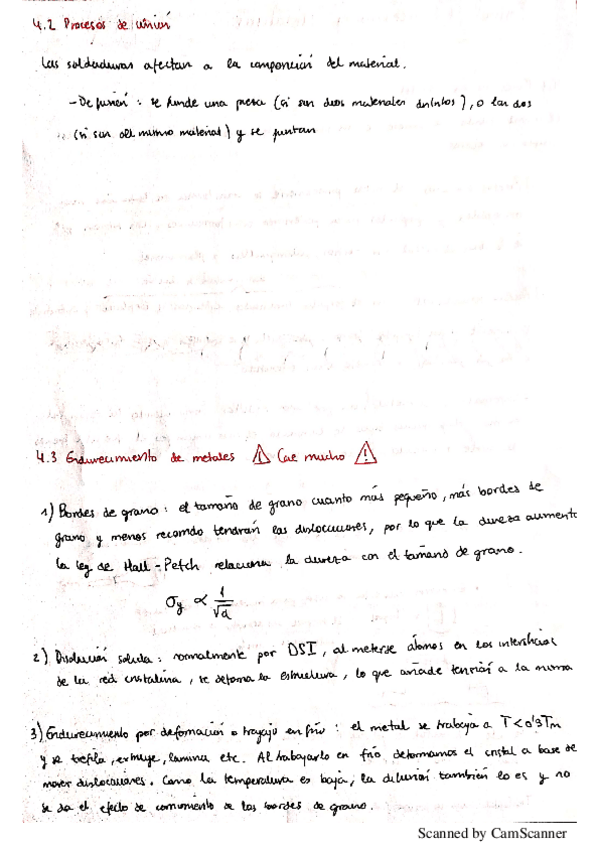 4.2 Procesos de unión
Las soldaduras afectan a la composición del material.
- De fusión: se funde una pieza (si son dos materiales distintos), o las dos
(si son del mismo material) y se juntan
4.3 Endurecimiento de metales ⚠ Cae mucho ⚠
1) Bordes de grano: el tamaño de grano cuanto más pequeño, más bordes de
grano y menos recorrido tendrán las dislocaciones, por lo que la dureza aumenta
La ley de Hall-Petch relaciona la dureza con el tamaño de grano.
σy ∝ 1/√d
2) Disolución sólida: normalmente por DSI, al meterse átomos en los intersticios
de la red cristalina, se deforma la estructura, lo que añade tensión a la misma
3) Endurecimiento por deformación o trabajo en frío: el metal se trabaja a T<0'3Tm
y se trefila, extruye, lamina etc. Al trabajarlo en frío deformamos el cristal a base de
mover dislocaciones. Como la temperatura es baja, la difusión también lo es y no
se da el efecto de de los bordes de grano.
Scanned by CamScanner